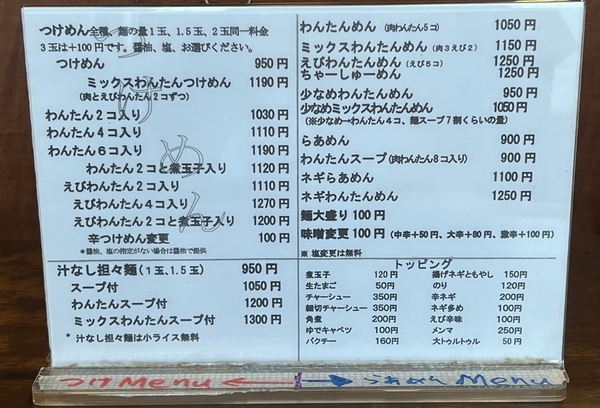 つけめん全種、麺の量1玉、1.5玉、2玉同一料金
3玉は+100円です。醤油、塩、お選びください。
つけめん 950円
ミックスわんたんつけめん 1190円
(肉とえびわんたん2コずつ)
わんたん2コ入り 1030円
わんたん4コ入り 1110円
わんたん6コ入り 1190円
わんたん2コと煮玉子入り 1120円
えびわんたん2コ入り 1110円
えびわんたん4コ入り 1270円
えびわんたん2コと煮玉子入り 1200円
辛つけめん変更 100円
*醤油、塩の指定がない場合は醤油で提供
つけめん
汁なし担々麺(1玉、1.5玉) 950円
スープ付 1050円
わんたんスープ付 1200円
ミックスわんたんスープ付 1300円
* 汁なし担々麺は小ライス無料
わんたんめん (肉わんたん5コ) 1050円
ミックスわんたんめん (肉3えび2) 1150円
えびわんたんめん (えび5コ) 1250円
ちゃーしゅーめん 1250円
少なめわんたんめん 950円
少なめミックスわんたんめん 1050円
(※少なめ→わんたん4コ、麺スープ7割くらいの量)
らあめん 900円
わんたんスープ(肉わんたん8コ入り) 900円
ネギらあめん 1100円
ネギわんたんめん 1250円
麺大盛り 100円
味噌変更 100円 (中辛+50円、大辛+80円、激辛+100円)
※ 塩変更は無料
トッピング
煮玉子 120円 揚げネギともやし 150円
生たまご 50円 のり 120円
チャーシュー 350円 辛ネギ 200円
細切チャーシュー 350円 ネギ多め 100円
角煮 200円 えび辛味 100円
ゆでキャベツ 100円 メンマ 250円
パクチー 160円 大トゥルトゥル 50円
つけMenu ← → らあめんMenu